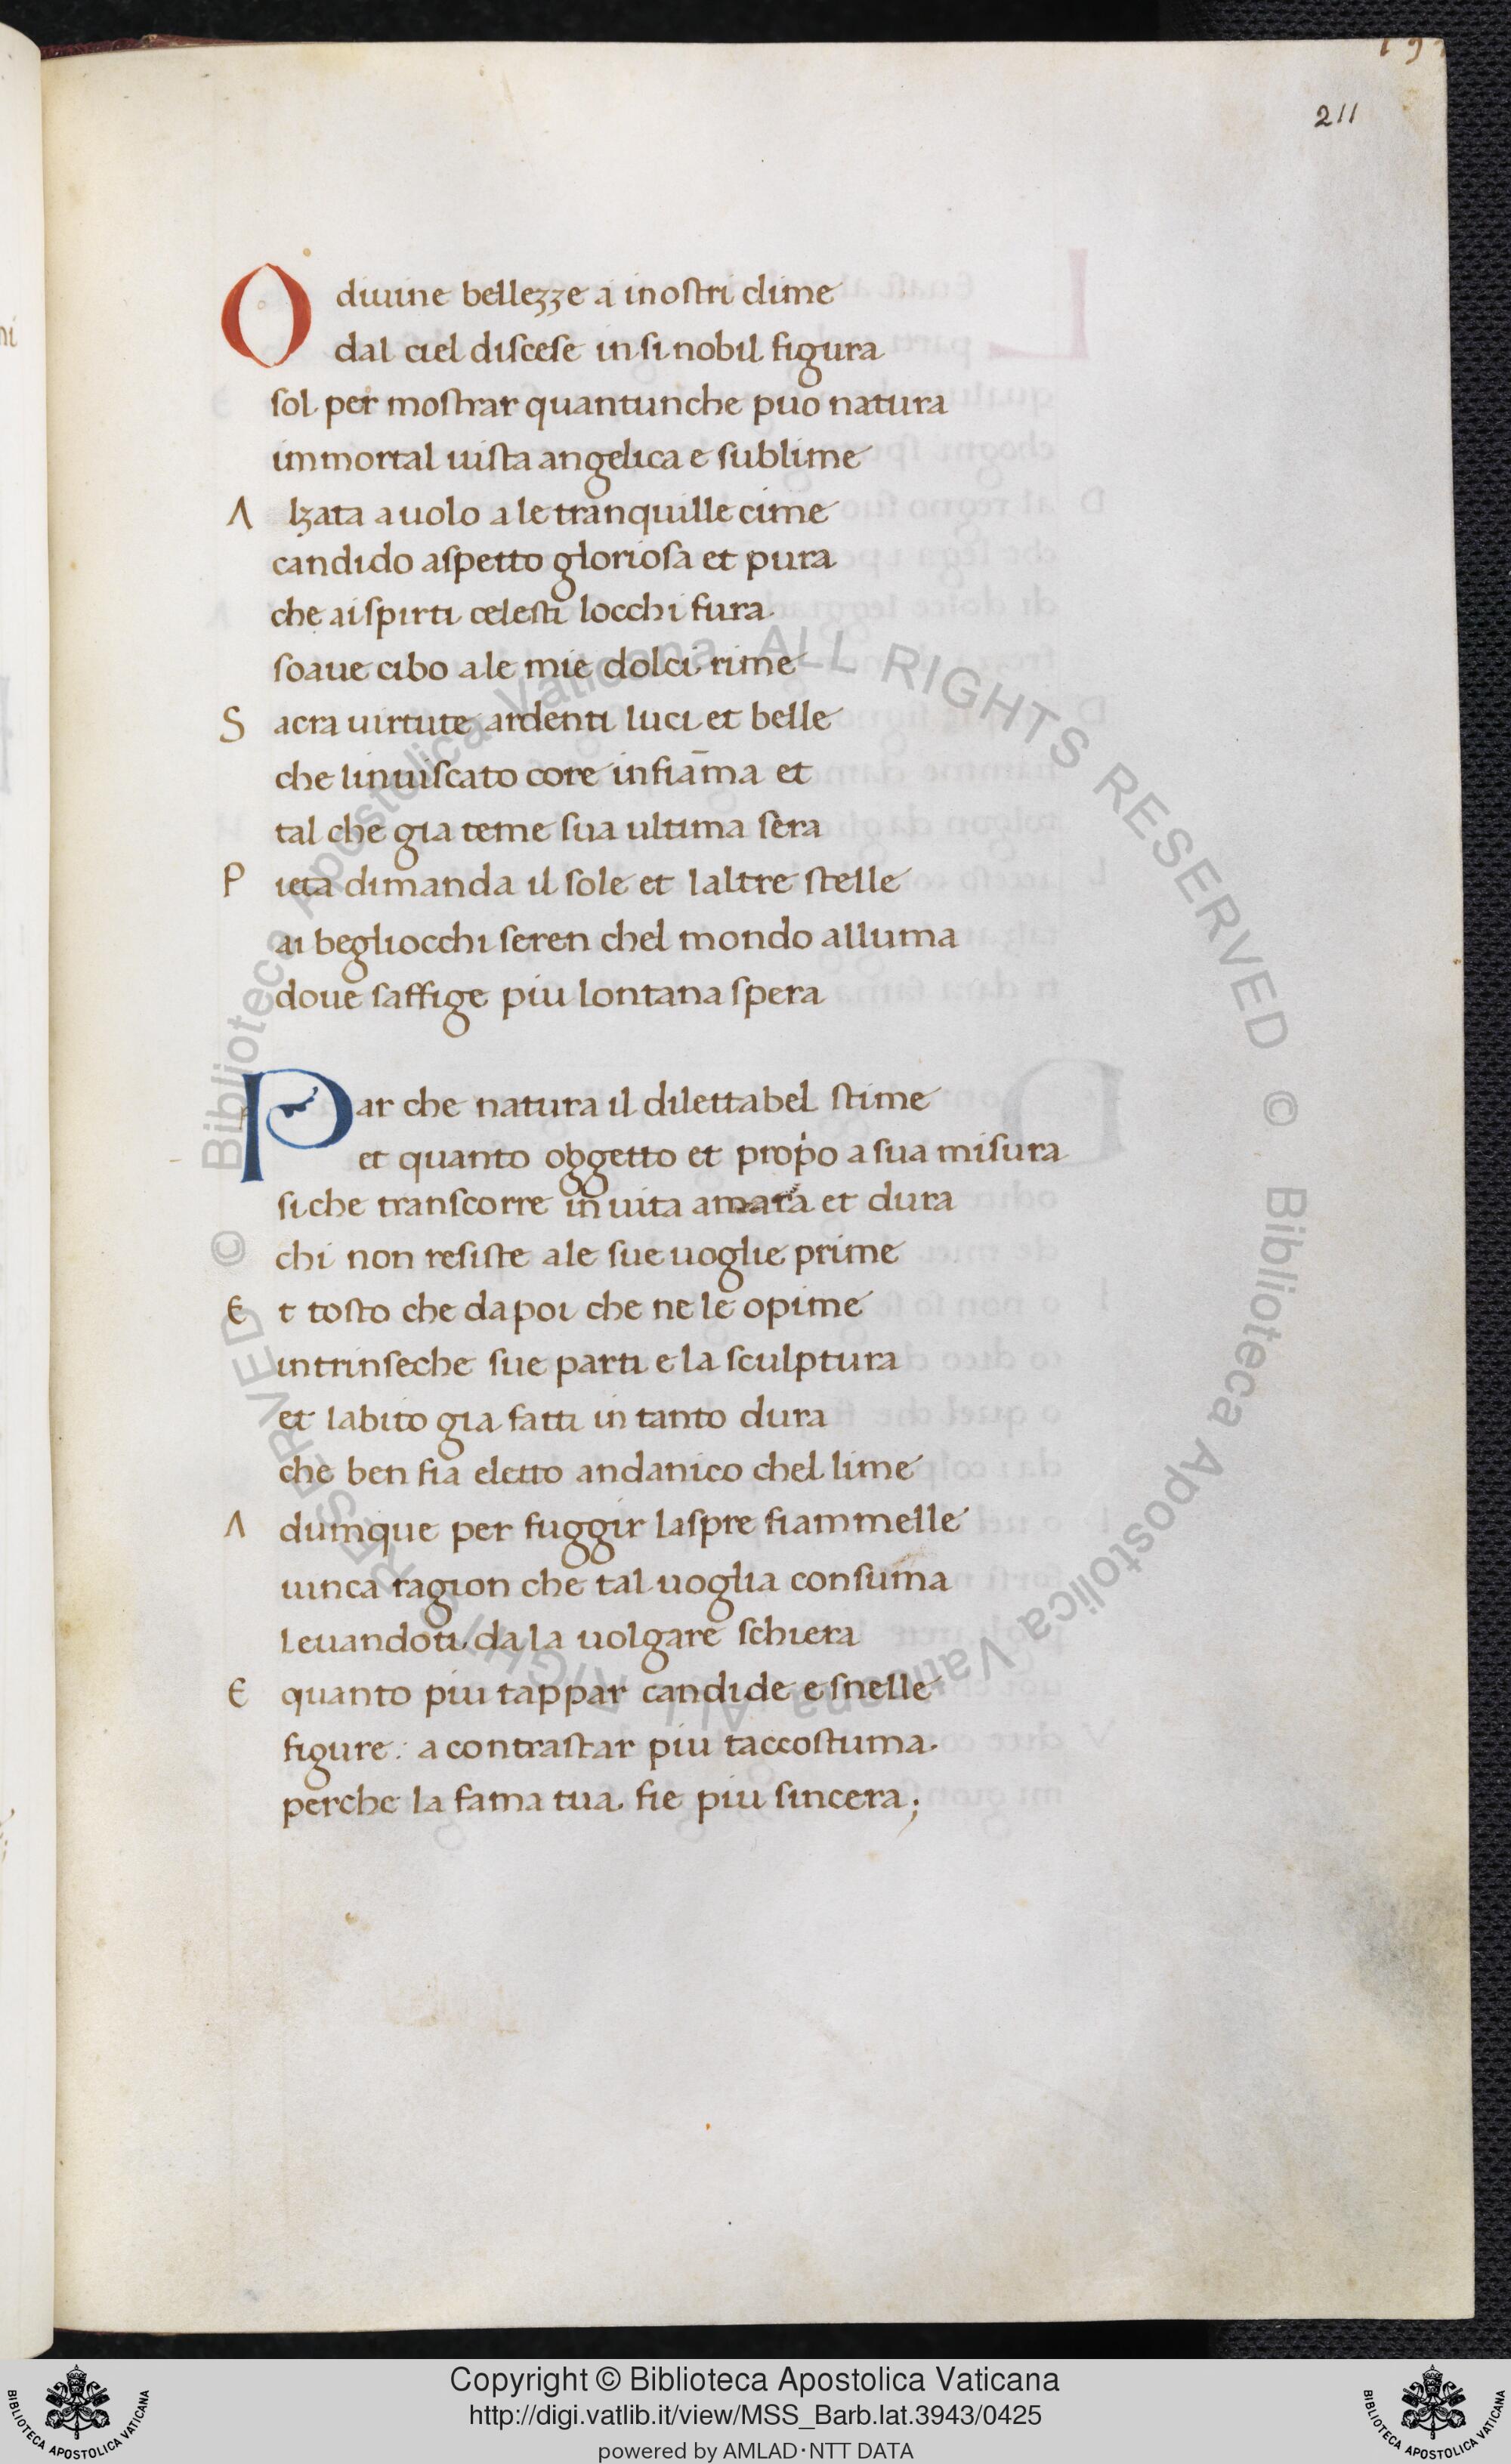 211
O diuine bellezze a i nostri clime
dal ciel discese in si nobil figura
sol per mostrar quantunche puo natura
immortal uista angelica e sublime
Alzata a uolo a le tranquille cime
candido aspetto gloriosa et pura
che ai spirti celesti locchi fura
soaue cibo a le mie dolci rime
Sacra uirtute ardenti luci et belle
che linuiscato core infiāma et
tal che gia teme sua ultima sera
Pieta dimanda il sole et laltre stelle
ai begliocchi seren chel mondo alluma
doue saffige piu lontana spera
Par che natura il dilettabel stime
et quanto obgetto et a sua misura
si che transcorre in uita amara et dura
chi non resiste ale sue uoglie prime
Et tosto che dapoi che ne le opime
intrinseche sue parti e la sculptura
et labito gia fatti in tanto dura
che ben fia eletto andanico chel lime
Adumque per fuggir laspre fiammelle
uinca ragion che tal uoglia consuma
leuandoti da la uolgare schiera
E quanto piu tappar candide e snelle
figure: a contrastar piu taccostuma.
perche la fama tua fie piu sincera;
© Biblioteca Apostolica Vaticana ALL RIGHTS RESERVED © Biblioteca Apostolica Vaticana ALL RIGHTS RESERVED
Copyright © Biblioteca Apostolica Vaticana
http://digi.vatlib.it/view/MSS_Barb.lat.3943/0425
powered by AMLAD·NTT DATA
BIBLIOTECA APOSTOLICA VATICANA
BIBLIOTECA APOSTOLICA VATICANA